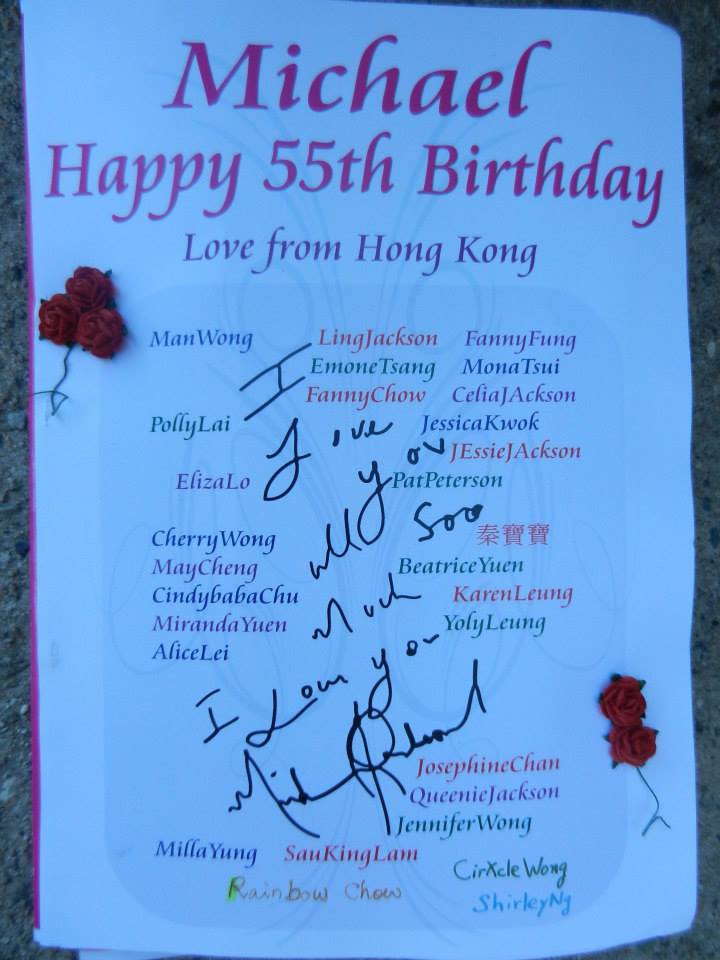 Michael
Happy 55th Birthday
Love from Hong Kong
ManWong LingJackson FannyFung
EmoneTsang MonaTsui
FannyChow CeliaJAckson
I
PollyLai JessicaKwok
Love you JEssieJAckson
ElizaLo PatPeterson
all Soo 秦寶寶
CherryWong
MayCheng BeatriceYuen
CindybabaChu KarenLeung
Much
MirandaYuen YolyLeung
AliceLei
I Love you
JosephineChan
QueenieJackson
JenniferWong
MillaYung SauKingLam
CirXcle Wong
Rainbow Chow
ShirleyNg